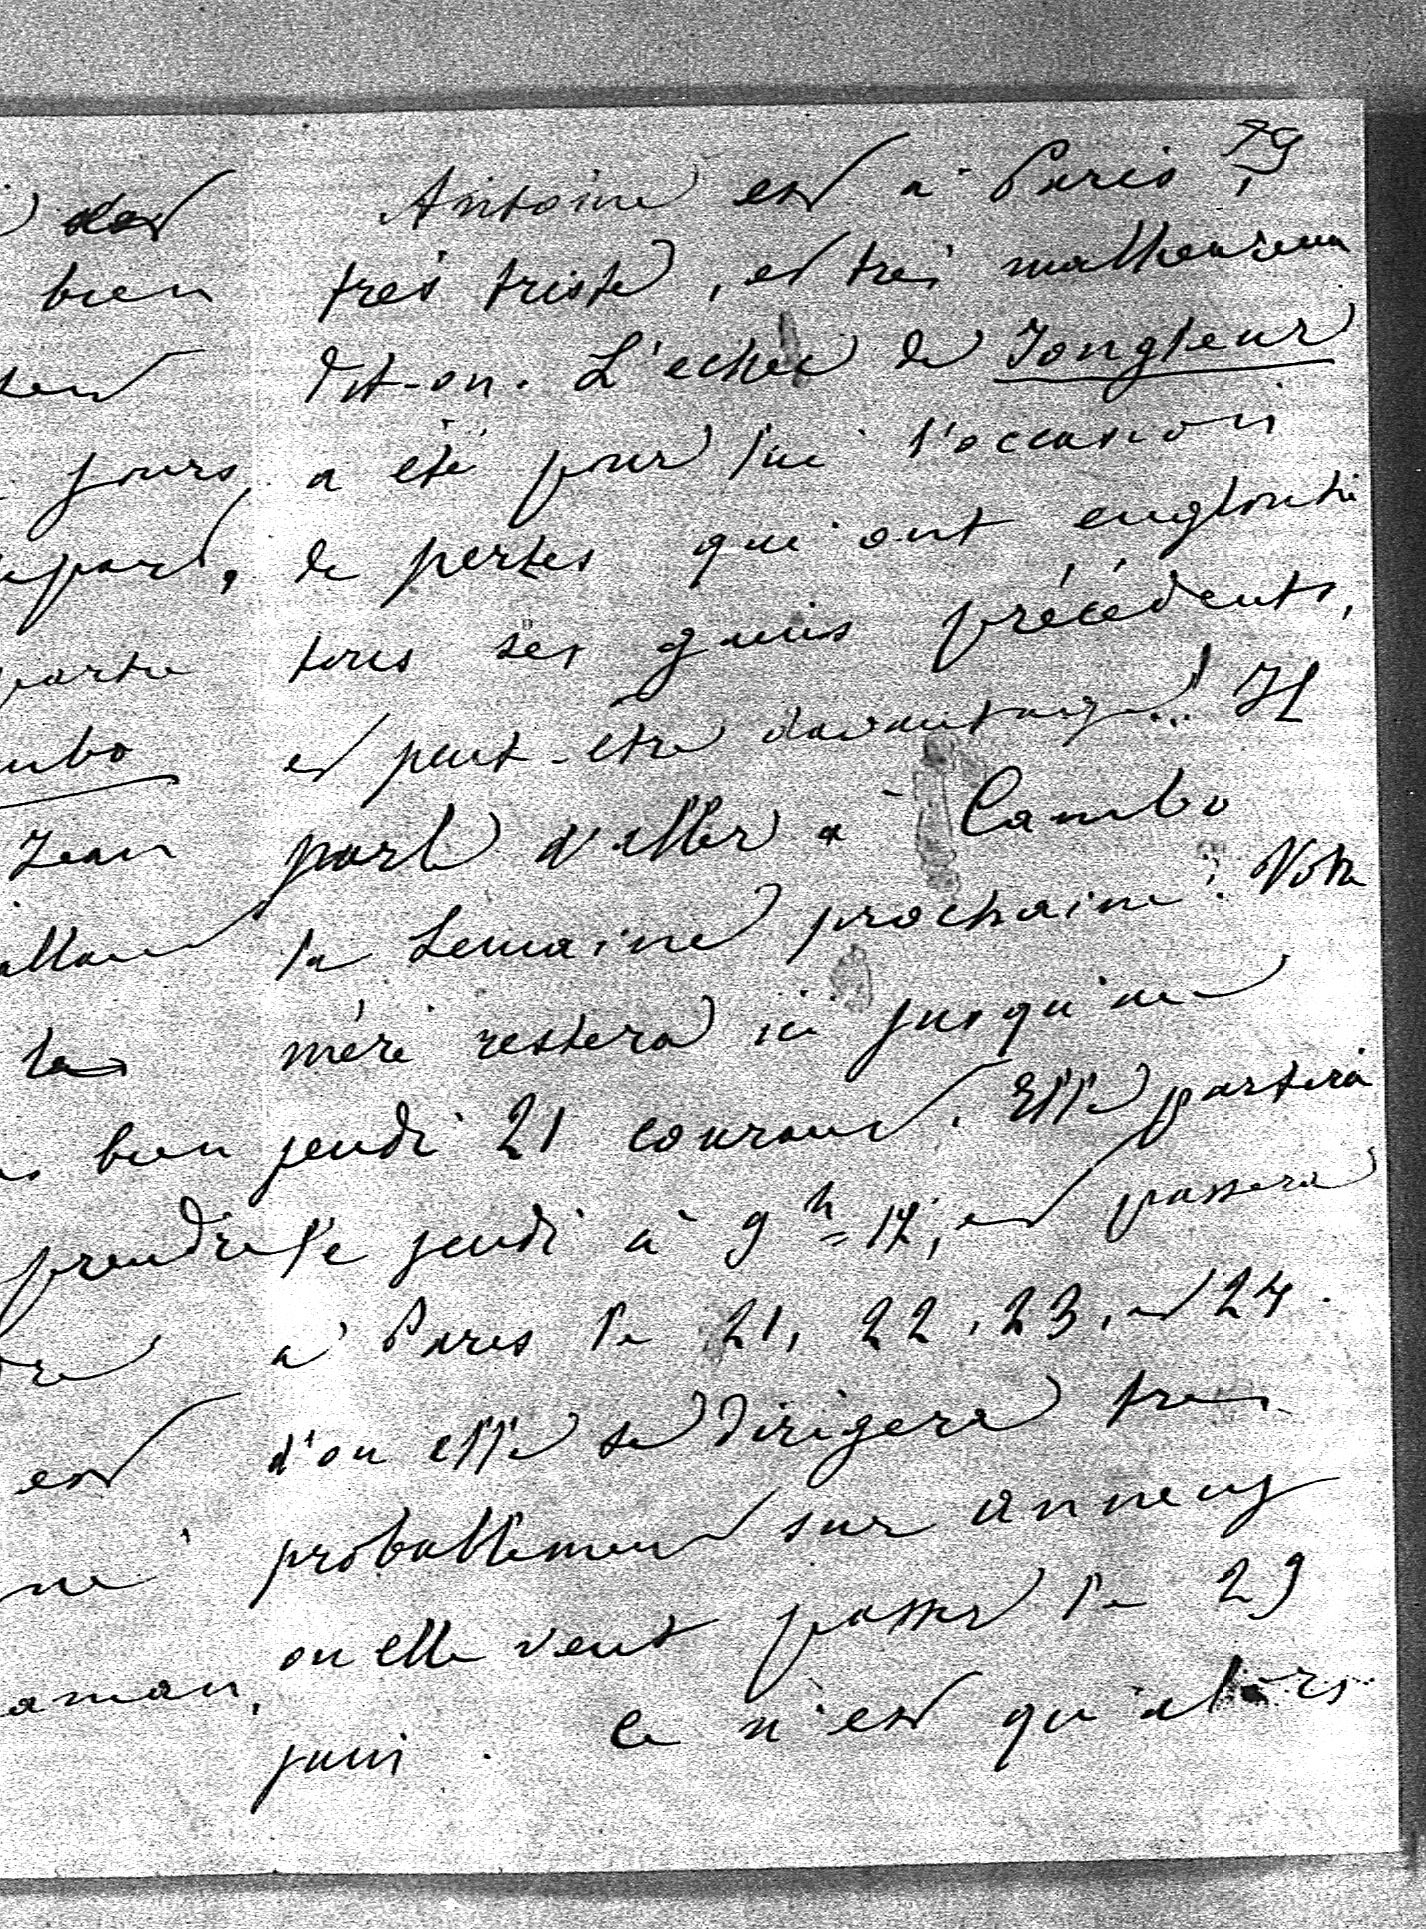 79
Antoine est à Paris,
très triste, et très malheureux
dit-on. L'echec de Jongleur
a été pour lui l'occasion
de pertes qui ont englouti
tous ses gains précédents,
et peut-être davantage...! Il
parle d'aller à Cambo
la semaine prochaine. Votre
mère restera ici jusqu'au
jeudi 21 courant. Elle partira
le jeudi à 9h 12, et passera
à Paris le 21, 22, 23, et 24.
d'ou elle se dirigera tres
probablement sur Annecy
ou elle veut passer le 29
juin. Ce n'est qu'alors
bien
jours,
Jean
la
bien
prendre
est
aman,